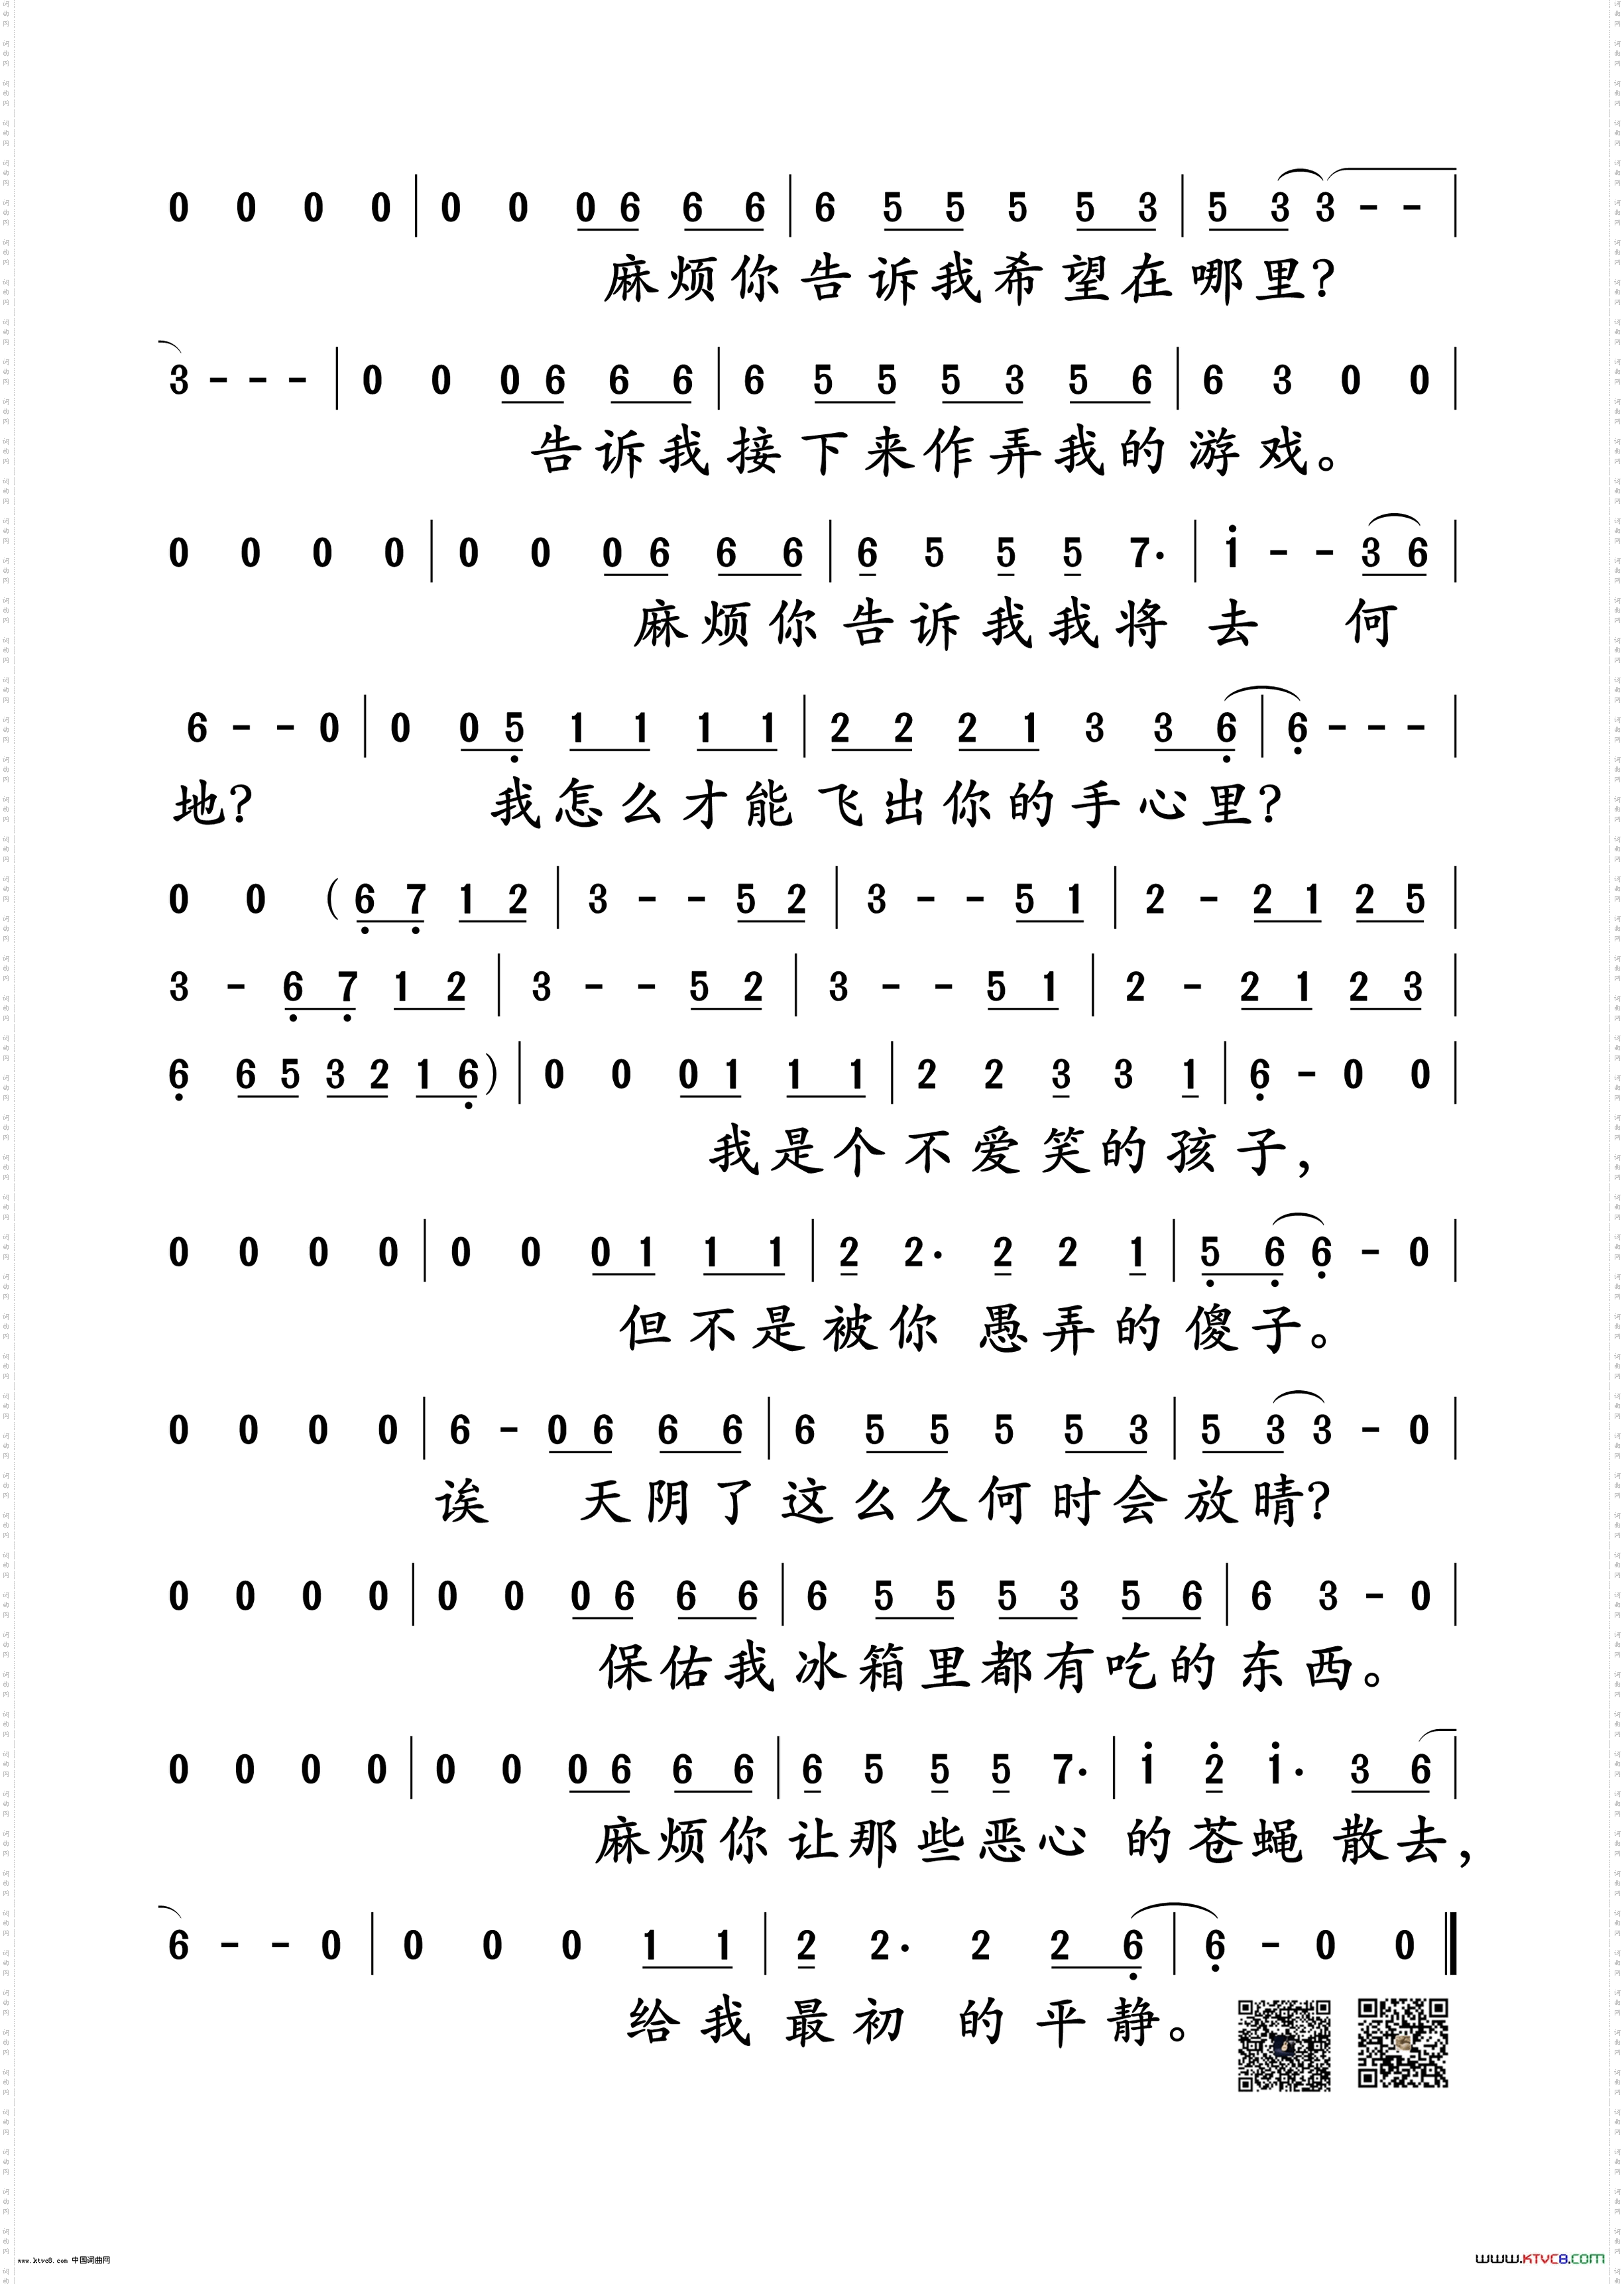 0 0 0 0 | 0 0 0 6 6 6 | 6 5 5 5 5 3 | 5 3 3 - - |
麻烦你告诉我希望在哪里?
3 - - - | 0 0 0 6 6 6 | 6 5 5 5 3 5 6 | 6 3 0 0 |
告诉我接下来作弄我的游戏。
0 0 0 0 | 0 0 0 6 6 6 | 6 5 5 5 7· | 1 - - 3 6 |
麻烦你告诉我我将去 何
6 - - 0 | 0 0 5 1 1 1 1 | 2 2 2 1 3 3 6 | 6 - - - |
地? 我怎么才能飞出你的手心里?
0 0 (6 7 1 2 | 3 - - 5 2 | 3 - - 5 1 | 2 - 2 1 2 5 |
3 - 6 7 1 2 | 3 - - 5 2 | 3 - - 5 1 | 2 - 2 1 2 3 |
6 6 5 3 2 1 6) | 0 0 0 1 1 1 | 2 2 3 3 1 | 6 - 0 0 |
我是个不爱笑的孩子,
0 0 0 0 | 0 0 0 1 1 1 | 2 2· 2 2 1 | 5 6 6 - 0 |
但不是被你 愚弄的傻子。
0 0 0 0 | 6 - 0 6 6 6 | 6 5 5 5 5 3 | 5 3 3 - 0 |
诶 天阴了这么久何时会放晴?
0 0 0 0 | 0 0 0 6 6 6 | 6 5 5 5 3 5 6 | 6 3 - 0 |
保佑我冰箱里都有吃的东西。
0 0 0 0 | 0 0 0 6 6 6 | 6 5 5 5 7· | 1 2 1· 3 6 |
麻烦你让那些恶心 的苍蝇 散去,
6 - - 0 | 0 0 0 1 1 | 2 2· 2 2 6 | 6 - 0 0 ‖
给我最初 的平静。
www.ktvc8.com 中国词曲网
www.KTVC8.com